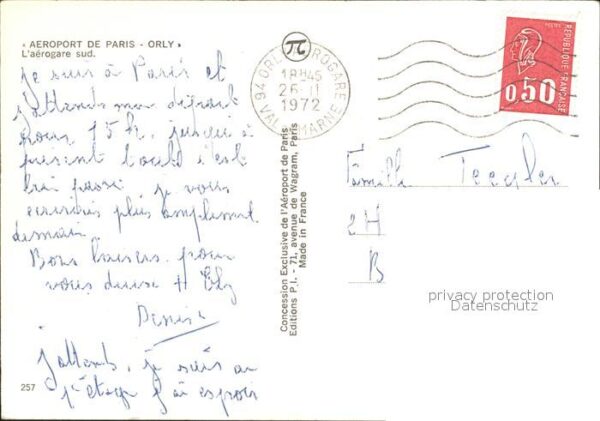 « AEROPORT DE PARIS - ORLY »
L'aérogare sud.
je suis à Paris et
j'attends mon départ
pour 15h, jusqu'à
présent tout s'est
bien passé je vous
écrirais plus amplement
demain.
Bons baisers pour
vous
Denise
J'attends, je suis au
j'ai
257
Concession Exclusive de l'Aéroport de Paris
Editions P.I. - 71, avenue de Wagram, Paris
Made in France
94 ORLY AEROGARE
18H45
26-11
1972
VAL DE MARNE
REPUBLIQUE FRANÇAISE
0,50
Famille
2H
B
privacy protection
Datenschutz